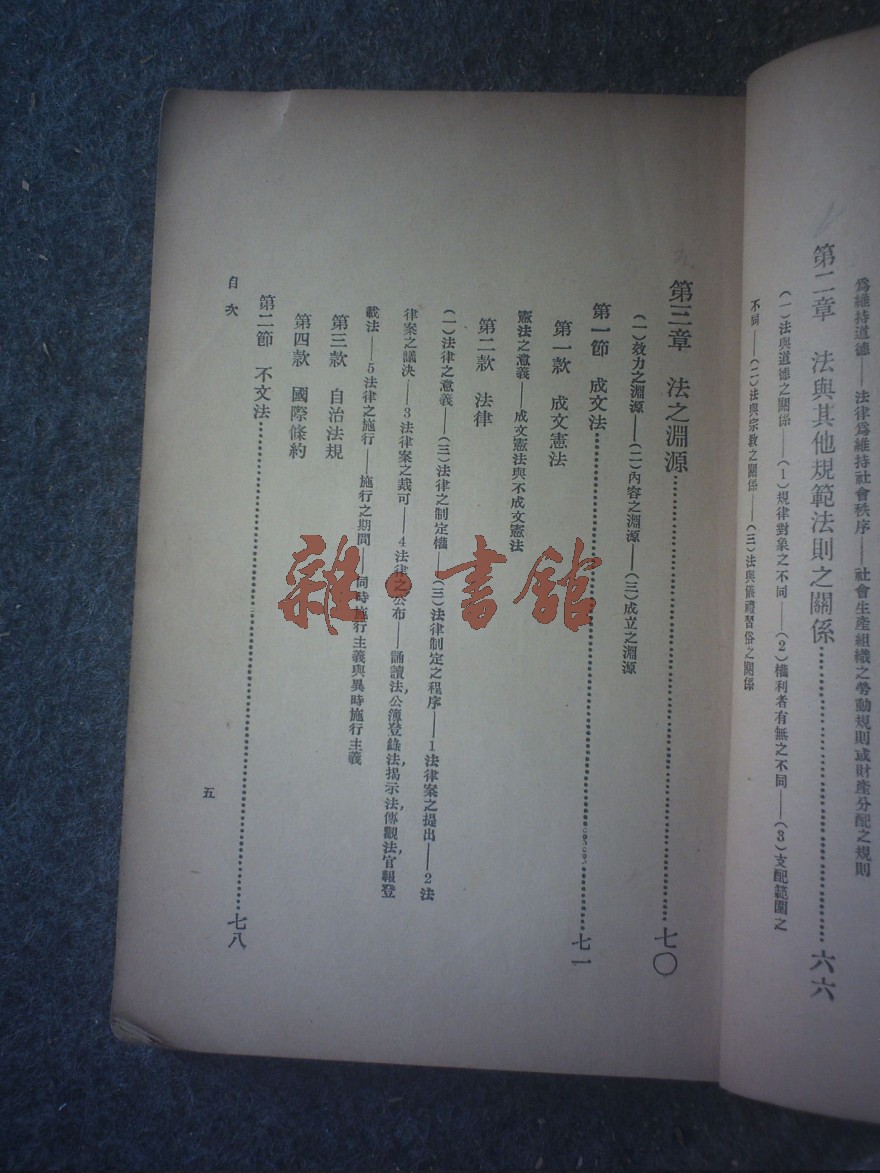 爲維持道德——法律爲維持社會秩序——社會生產組織之勞動規則或財產分配之規則
第二章　法與其他規範法則之關係……六六
(一)法與道德之關係——(1)規律對象之不同——(2)權利者有無之不同——(3)支配範圍之
不同——(二)法與宗教之關係——(三)法與儀禮習俗之關係
第三章　法之淵源……七〇
(一)效力之淵源——(二)內容之淵源——(三)成立之淵源
第一節　成文法……七一
第一款　成文憲法
憲法之意義——成文憲法與不成文憲法
第二款　法律
(一)法律之意義——(三)法律之制定權——(三)法律制定之程序——1法律案之提出——2法
律案之議決——3法律案之裁可——4法律之公布——誦讀法,公簿登錄法,揭示法,傳觀法,官報登
載法——5法律之施行——施行之期間——同時施行主義與異時施行主義
第三款　自治法規
第四款　國際條約
第二節　不文法……七八
目次
五
雜·書館